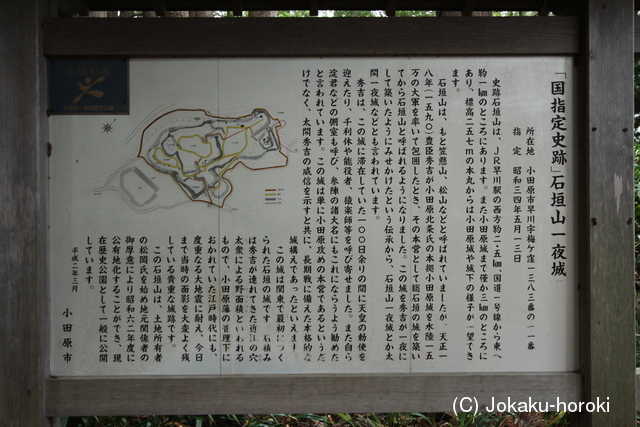 「国指定史跡」石垣山一夜城
所在地　小田原市早川字梅ケ窪一三八三番の一一番
指　定　昭和三四年五月一三日
史跡石垣山は、ＪＲ早川駅の西方約二・五㎞、国道一号線から東へ
約一㎞のところにあります。また小田原城まで僅か三㎞のところに
あり、標高二五七ｍの本丸からは小田原城や城下の様子が一望でき
ます。
石垣山は、もと笠懸山、松山などと呼ばれていましたが、天正一
八年（一五九〇）豊臣秀吉が小田原北条氏の本拠小田原城を水陸一五
万の大軍を率いて包囲したとき、その本営として総石垣の城を築い
てから石垣山と呼ばれるようになりました。この城を秀吉が一夜に
して築いたようにみせかけたという伝承から、石垣山一夜城とか太
閤一夜城などとも言われています。
秀吉は、この城に滞在していた一〇〇日余りの間に天皇の勅使を
迎えたり、千利休や能役者、猿楽師等を呼び寄せました。また自ら
淀君などの側室も呼び、参陣の諸大名にもこれにならうよう勧めた
と言われています。この城は単に小田原攻めの本営であるというだ
けでなく、太閤秀吉の威信を示すと共に、長期戦に備えた本格的な
城構えであったといえましょう。
この城は関東で最初につく
られた石垣の城です。石積み
は秀吉が連れてきた近江の穴
太衆による野面積といわれる
もので、小田原藩の管理下に
おかれていた江戸時代にも、
度重なる大地震に耐え、今日
まで当時の面影を大変よく残
している貴重な城跡です。
この石垣山は、土地所有者
の松岡氏を始め地元関係者の
御厚意により昭和六二年度に
公有地化することができ、現
在歴史公園として一般に公開
しています。
平成二年三月
小田原市
(C) Jokaku-horoki